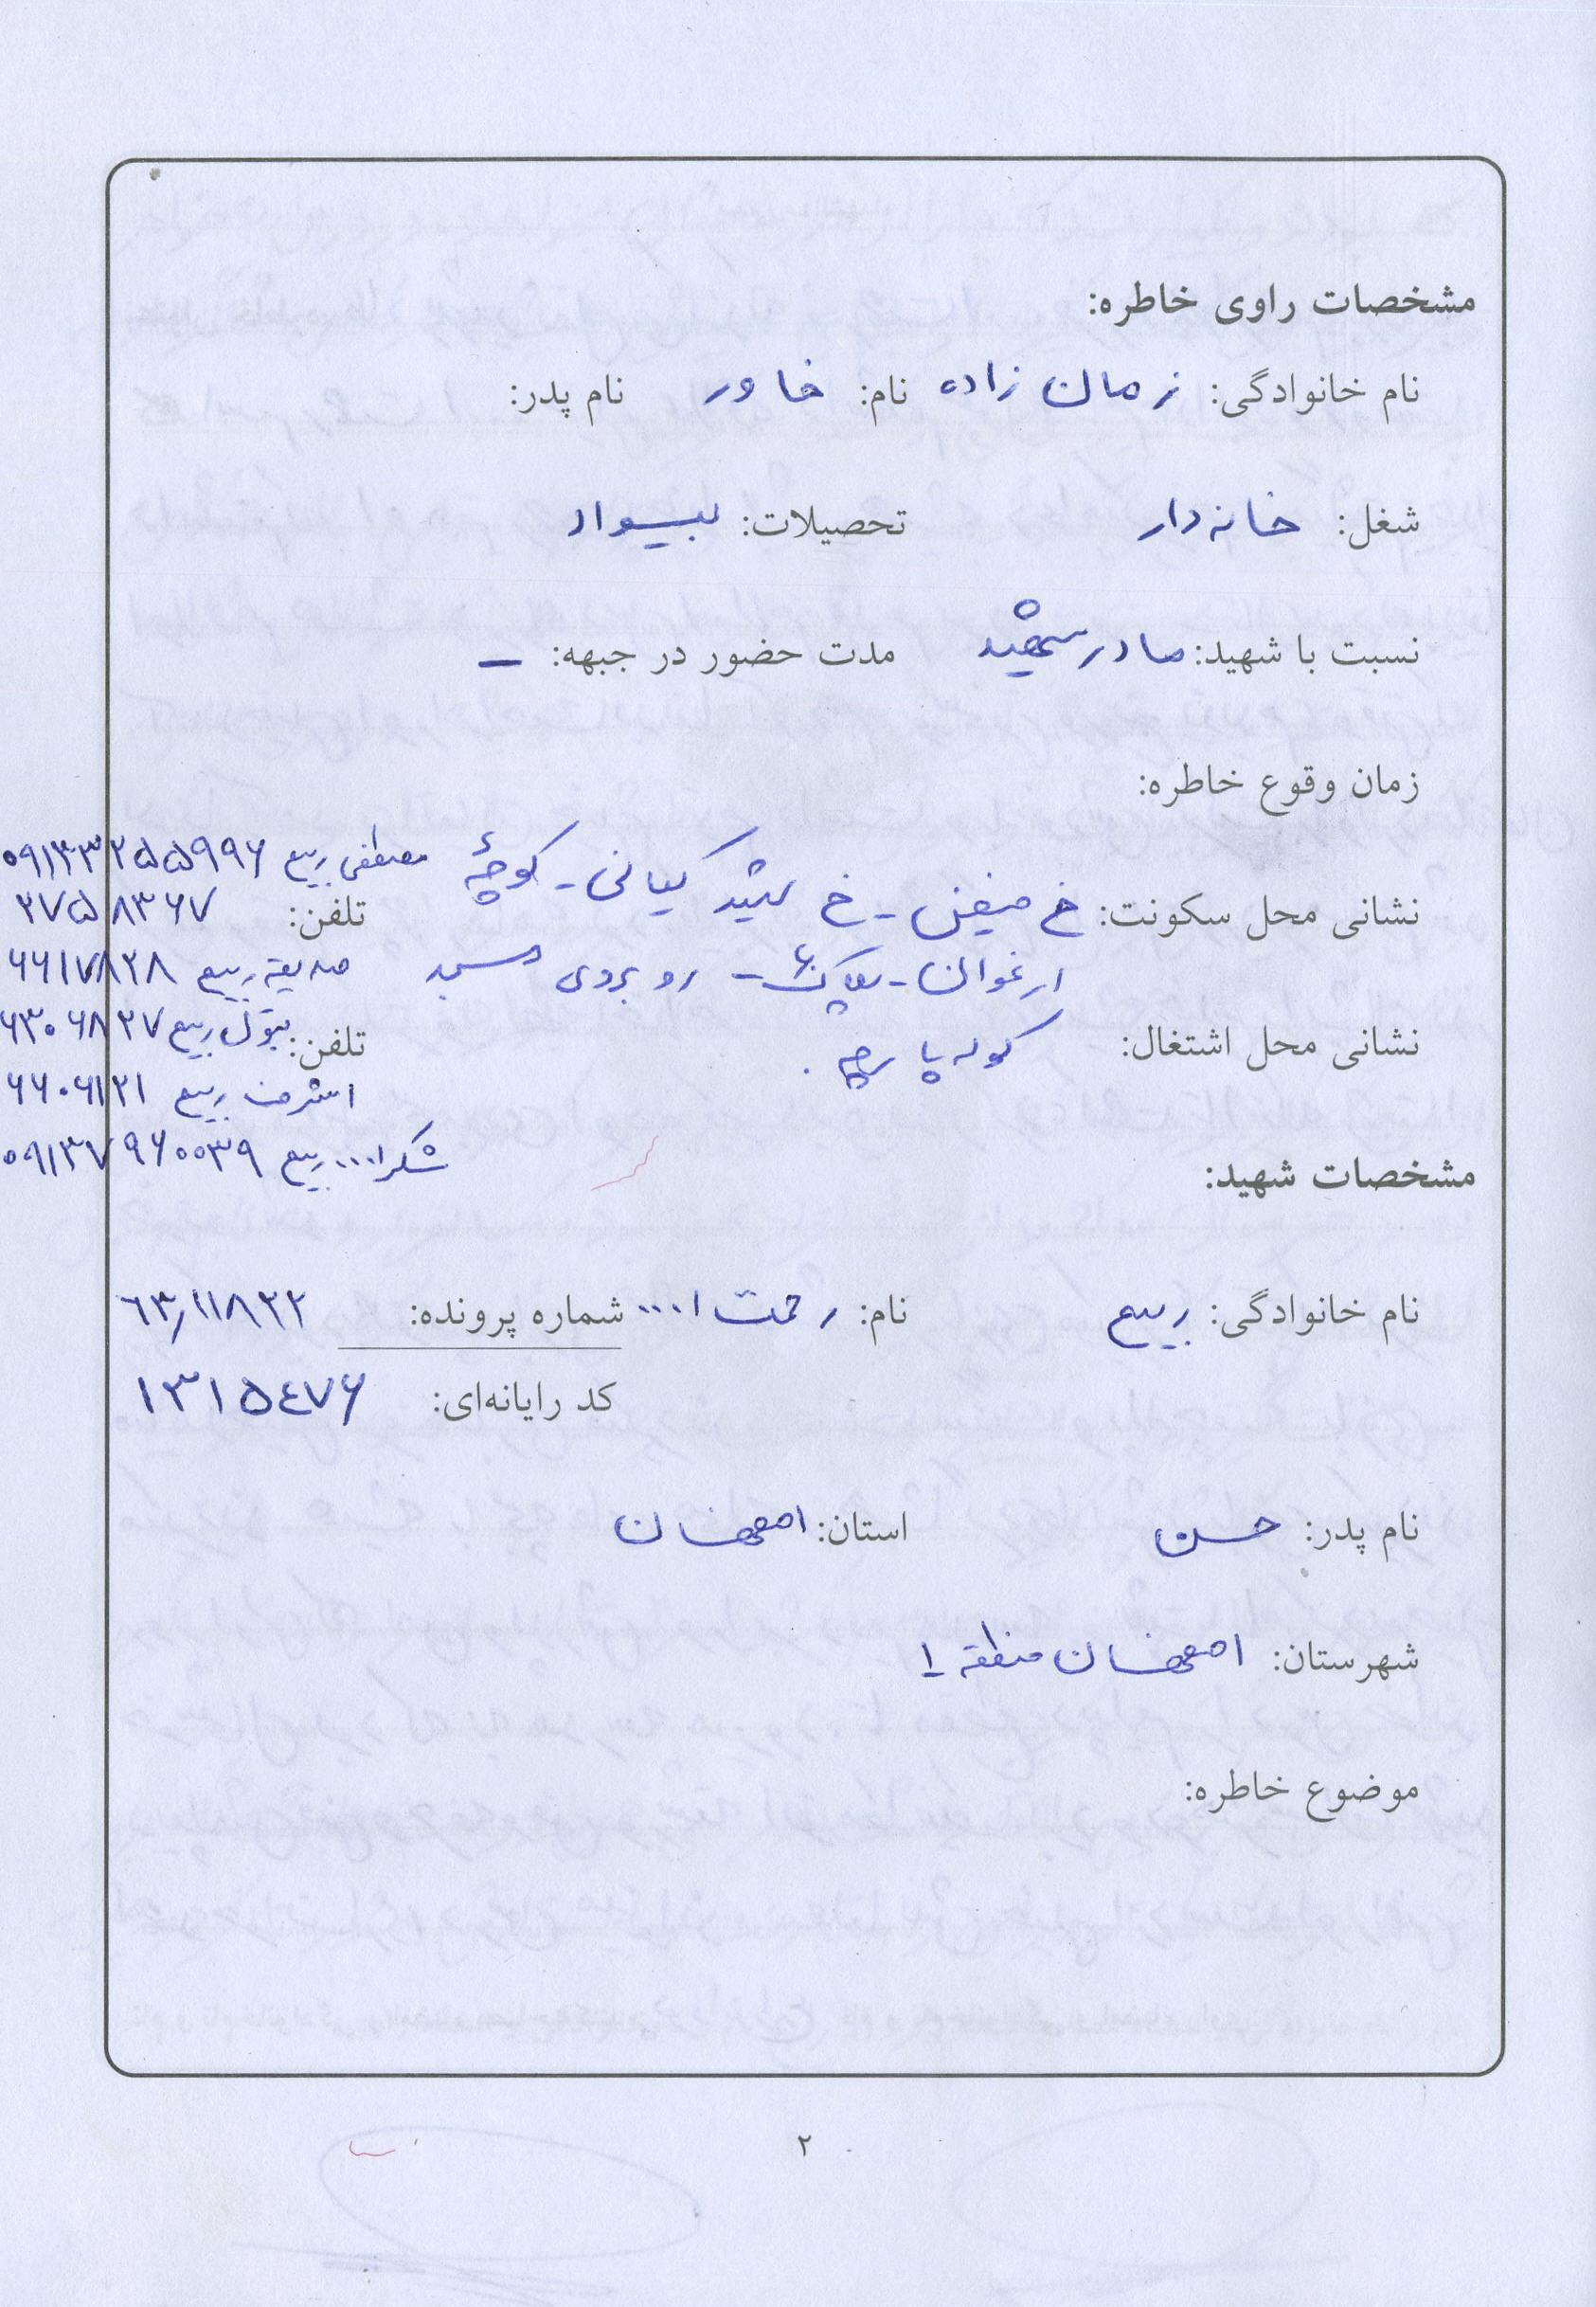 مشخصات راوی خاطره:
نام خانوادگی: زمان زاده نام: خاور نام پدر:
شغل: خانه دار تحصیلات: بیسواد
نسبت با شهید: مادر شهید مدت حضور در جبهه: –
زمان وقوع خاطره:
مصطفی ربیع ۰۹۱۳۳۲۵۵۹۹۶
نشانی محل سکونت: خ فیض - خ شهید کیانی - کوچهٔ تلفن: ۲۷۵۸۳۶۷
ارغوان - پلاک - روبروی مسجد صدیقه ربیع ۶۶۱۷۸۲۸
نشانی محل اشتغال: کوله پارچه. تلفن: بتول ربیع ۶۳۰۶۸۲۷
اشرف ربیع ۶۶۰۶۱۲۱
شکرا... ربیع ۰۹۱۳۷۹۶۰۰۳۹
مشخصات شهید:
نام خانوادگی: ربیع نام: رحمت ا... شماره پرونده: ۶۳٫۱۱۸۲۲
کد رایانه‌ای: ۱۳۱۵۴۷۶
نام پدر: حسن استان: اصفهان
شهرستان: اصفهان منطقه ۱
موضوع خاطره:
۲